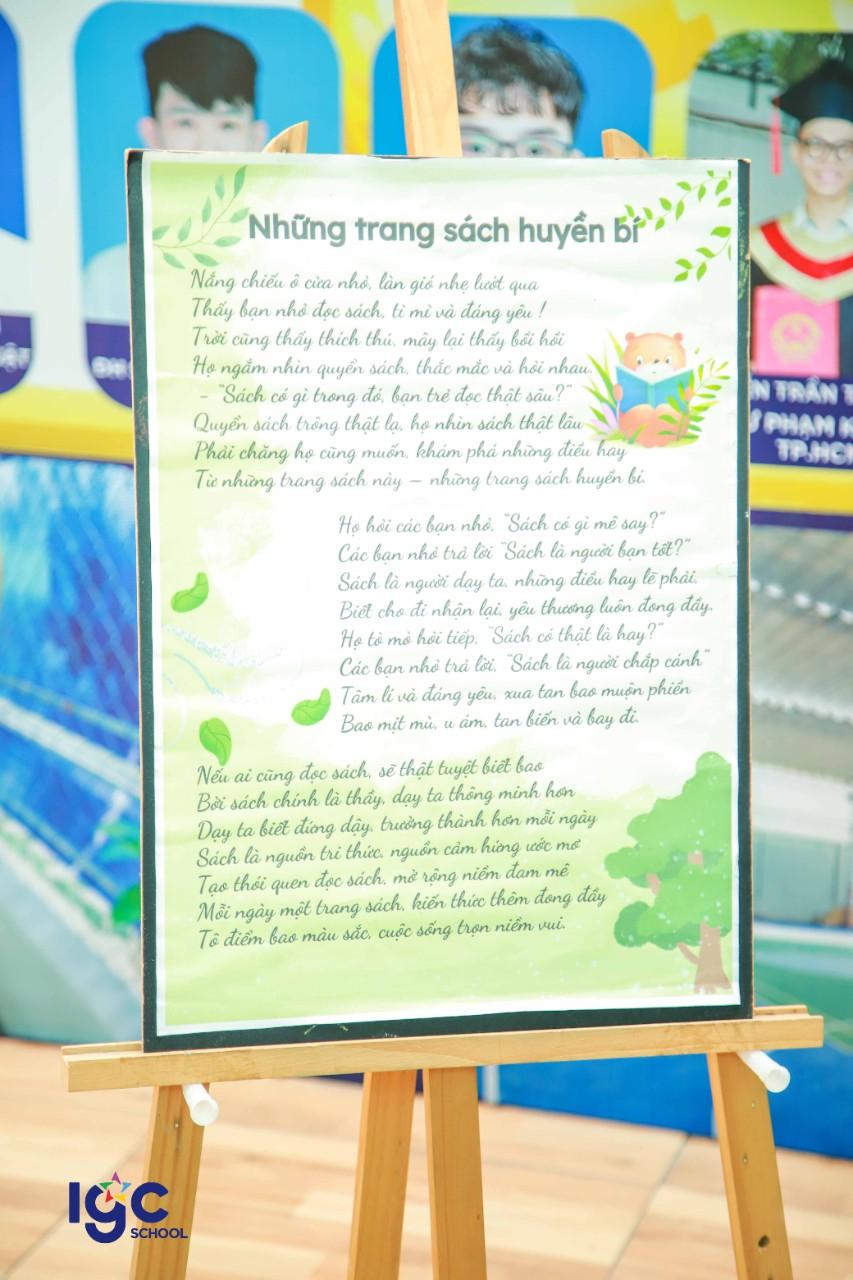 Những trang sách huyền bí
Nắng chiếu ô cửa nhỏ, làn gió nhẹ lướt qua
Thấy bạn nhỏ đọc sách, tỉ mỉ và đáng yêu !
Trời cũng thấy thích thú, mây lại thấy bồi hồi
Họ ngắm nhìn quyển sách, thắc mắc và hỏi nhau.
- "Sách có gì trong đó, bạn trẻ đọc thật sâu?"
Quyển sách trông thật lạ, họ nhìn sách thật lâu
Phải chăng họ cũng muốn, khám phá những điều hay
Từ những trang sách này – những trang sách huyền bí.
Họ hỏi các bạn nhỏ, "Sách có gì mê say?"
Các bạn nhỏ trả lời "Sách là người bạn tốt?"
Sách là người dạy ta, những điều hay lẽ phải,
Biết cho đi nhận lại, yêu thương luôn đong đầy.
Họ tò mò hỏi tiếp, "Sách có thật là hay?"
Các bạn nhỏ trả lời, "Sách là người chắp cánh"
Tâm lí và đáng yêu, xua tan bao muộn phiền
Bao mịt mù, u ám, tan biến và bay đi.
Nếu ai cũng đọc sách, sẽ thật tuyệt biết bao
Bởi sách chính là thầy, dạy ta thông minh hơn
Dạy ta biết đứng dậy, trưởng thành hơn mỗi ngày
Sách là nguồn tri thức, nguồn cảm hứng ước mơ
Tạo thói quen đọc sách, mở rộng niềm đam mê
Mỗi ngày một trang sách, kiến thức thêm đong đầy
Tô điểm bao màu sắc, cuộc sống trọn niềm vui.
ĐH
N TRẦN T
Ư PHẠM K
TP.HCM
IGC
SCHOOL